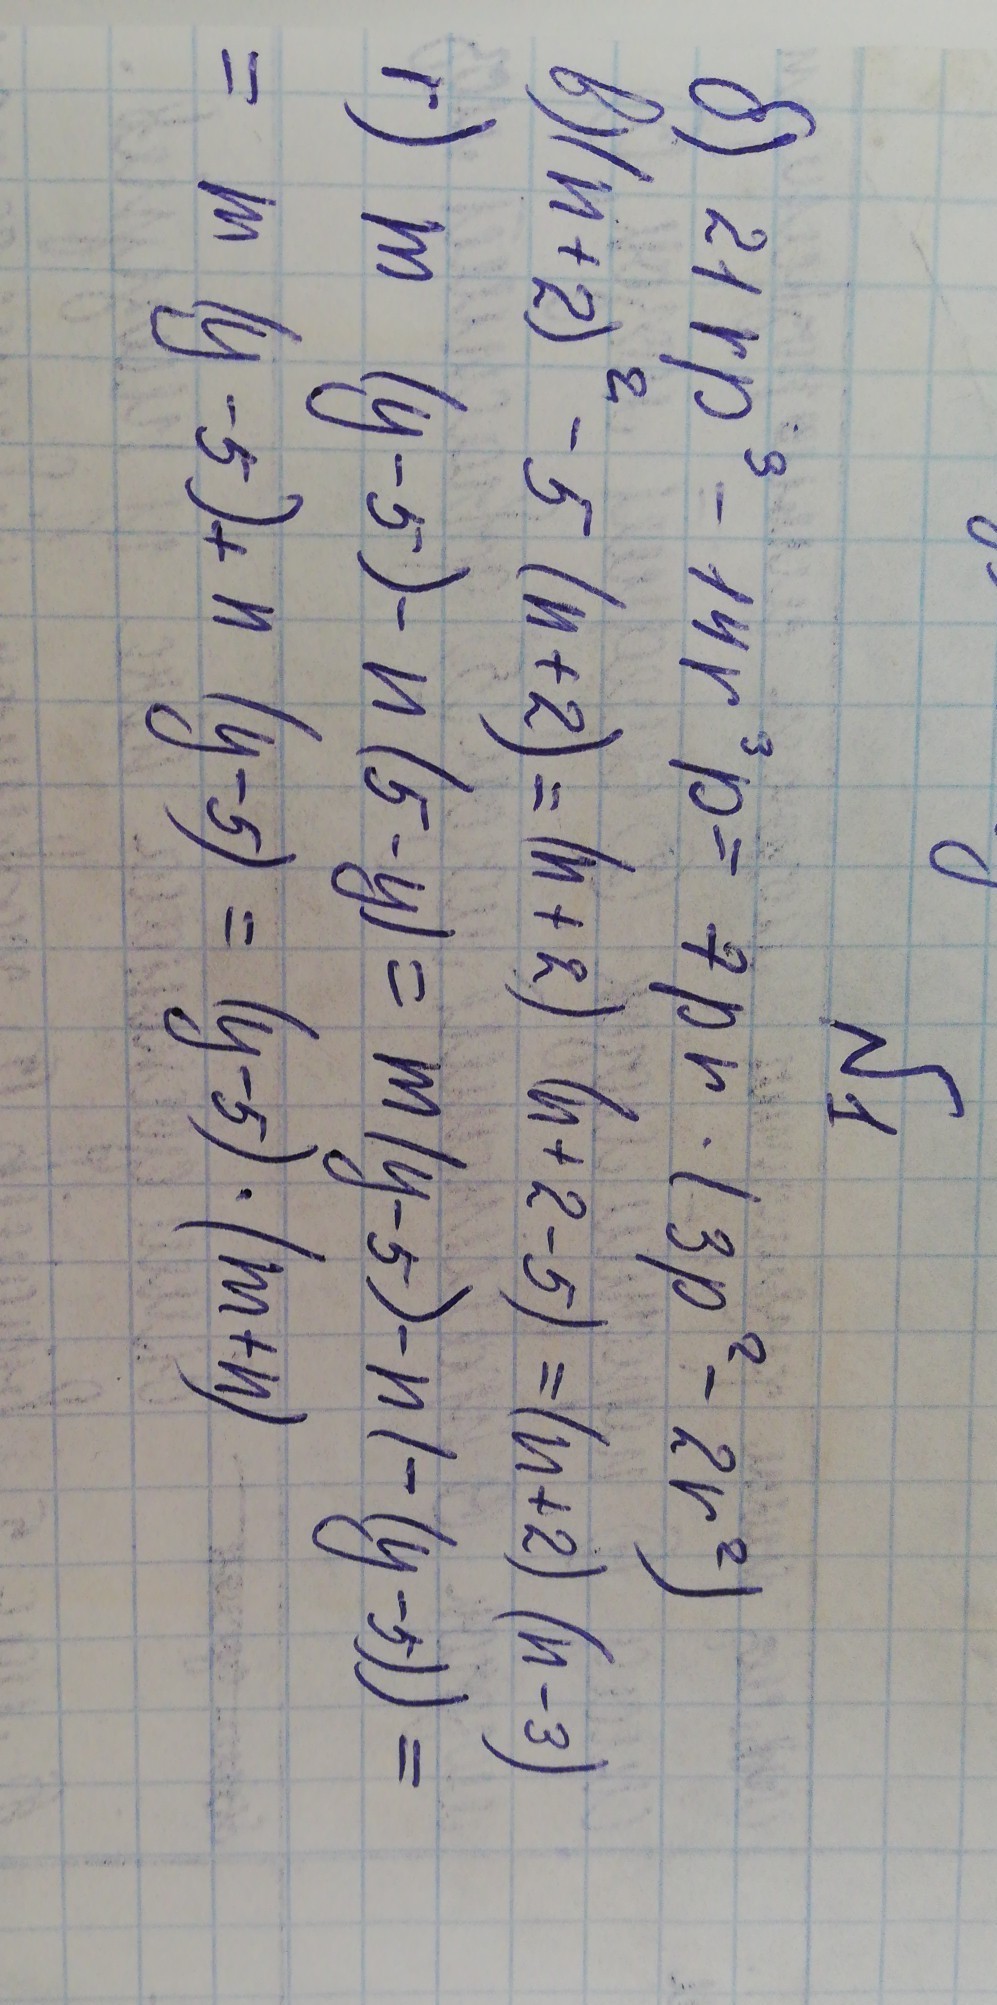 №1
б) 21rp³ - 14r³p = 7pr · (3p² - 2r²)
в) (n+2)² - 5(n+2) = (n+2) (n+2-5) = (n+2) (n-3)
г) m (y-5) - n (5-y) = m (y-5) - n (-(y-5)) =
= m (y-5) + n (y-5) = (y-5) · (m+n)